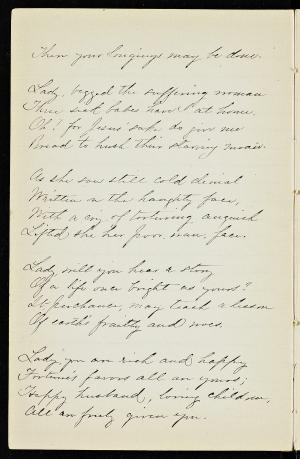 Then your longings may be done.
Lady, begged the suffering woman
Three sick babes have I at home.
Oh! for Jesus' sake do give me
Bread to hush their starving moans.
As she saw still cold denial
Written on the haughty face,
With a cry of torturing anguish
Lifted she her poor, wan, face.
Lady will you hear a story
Of a life once bright as yours?
It perchance, may teach a lesson
Of earth's frailty and woes.
Lady you are rich and happy
Fortune's favors all are yours;
Happy husband, loving children,
All are freely given you.